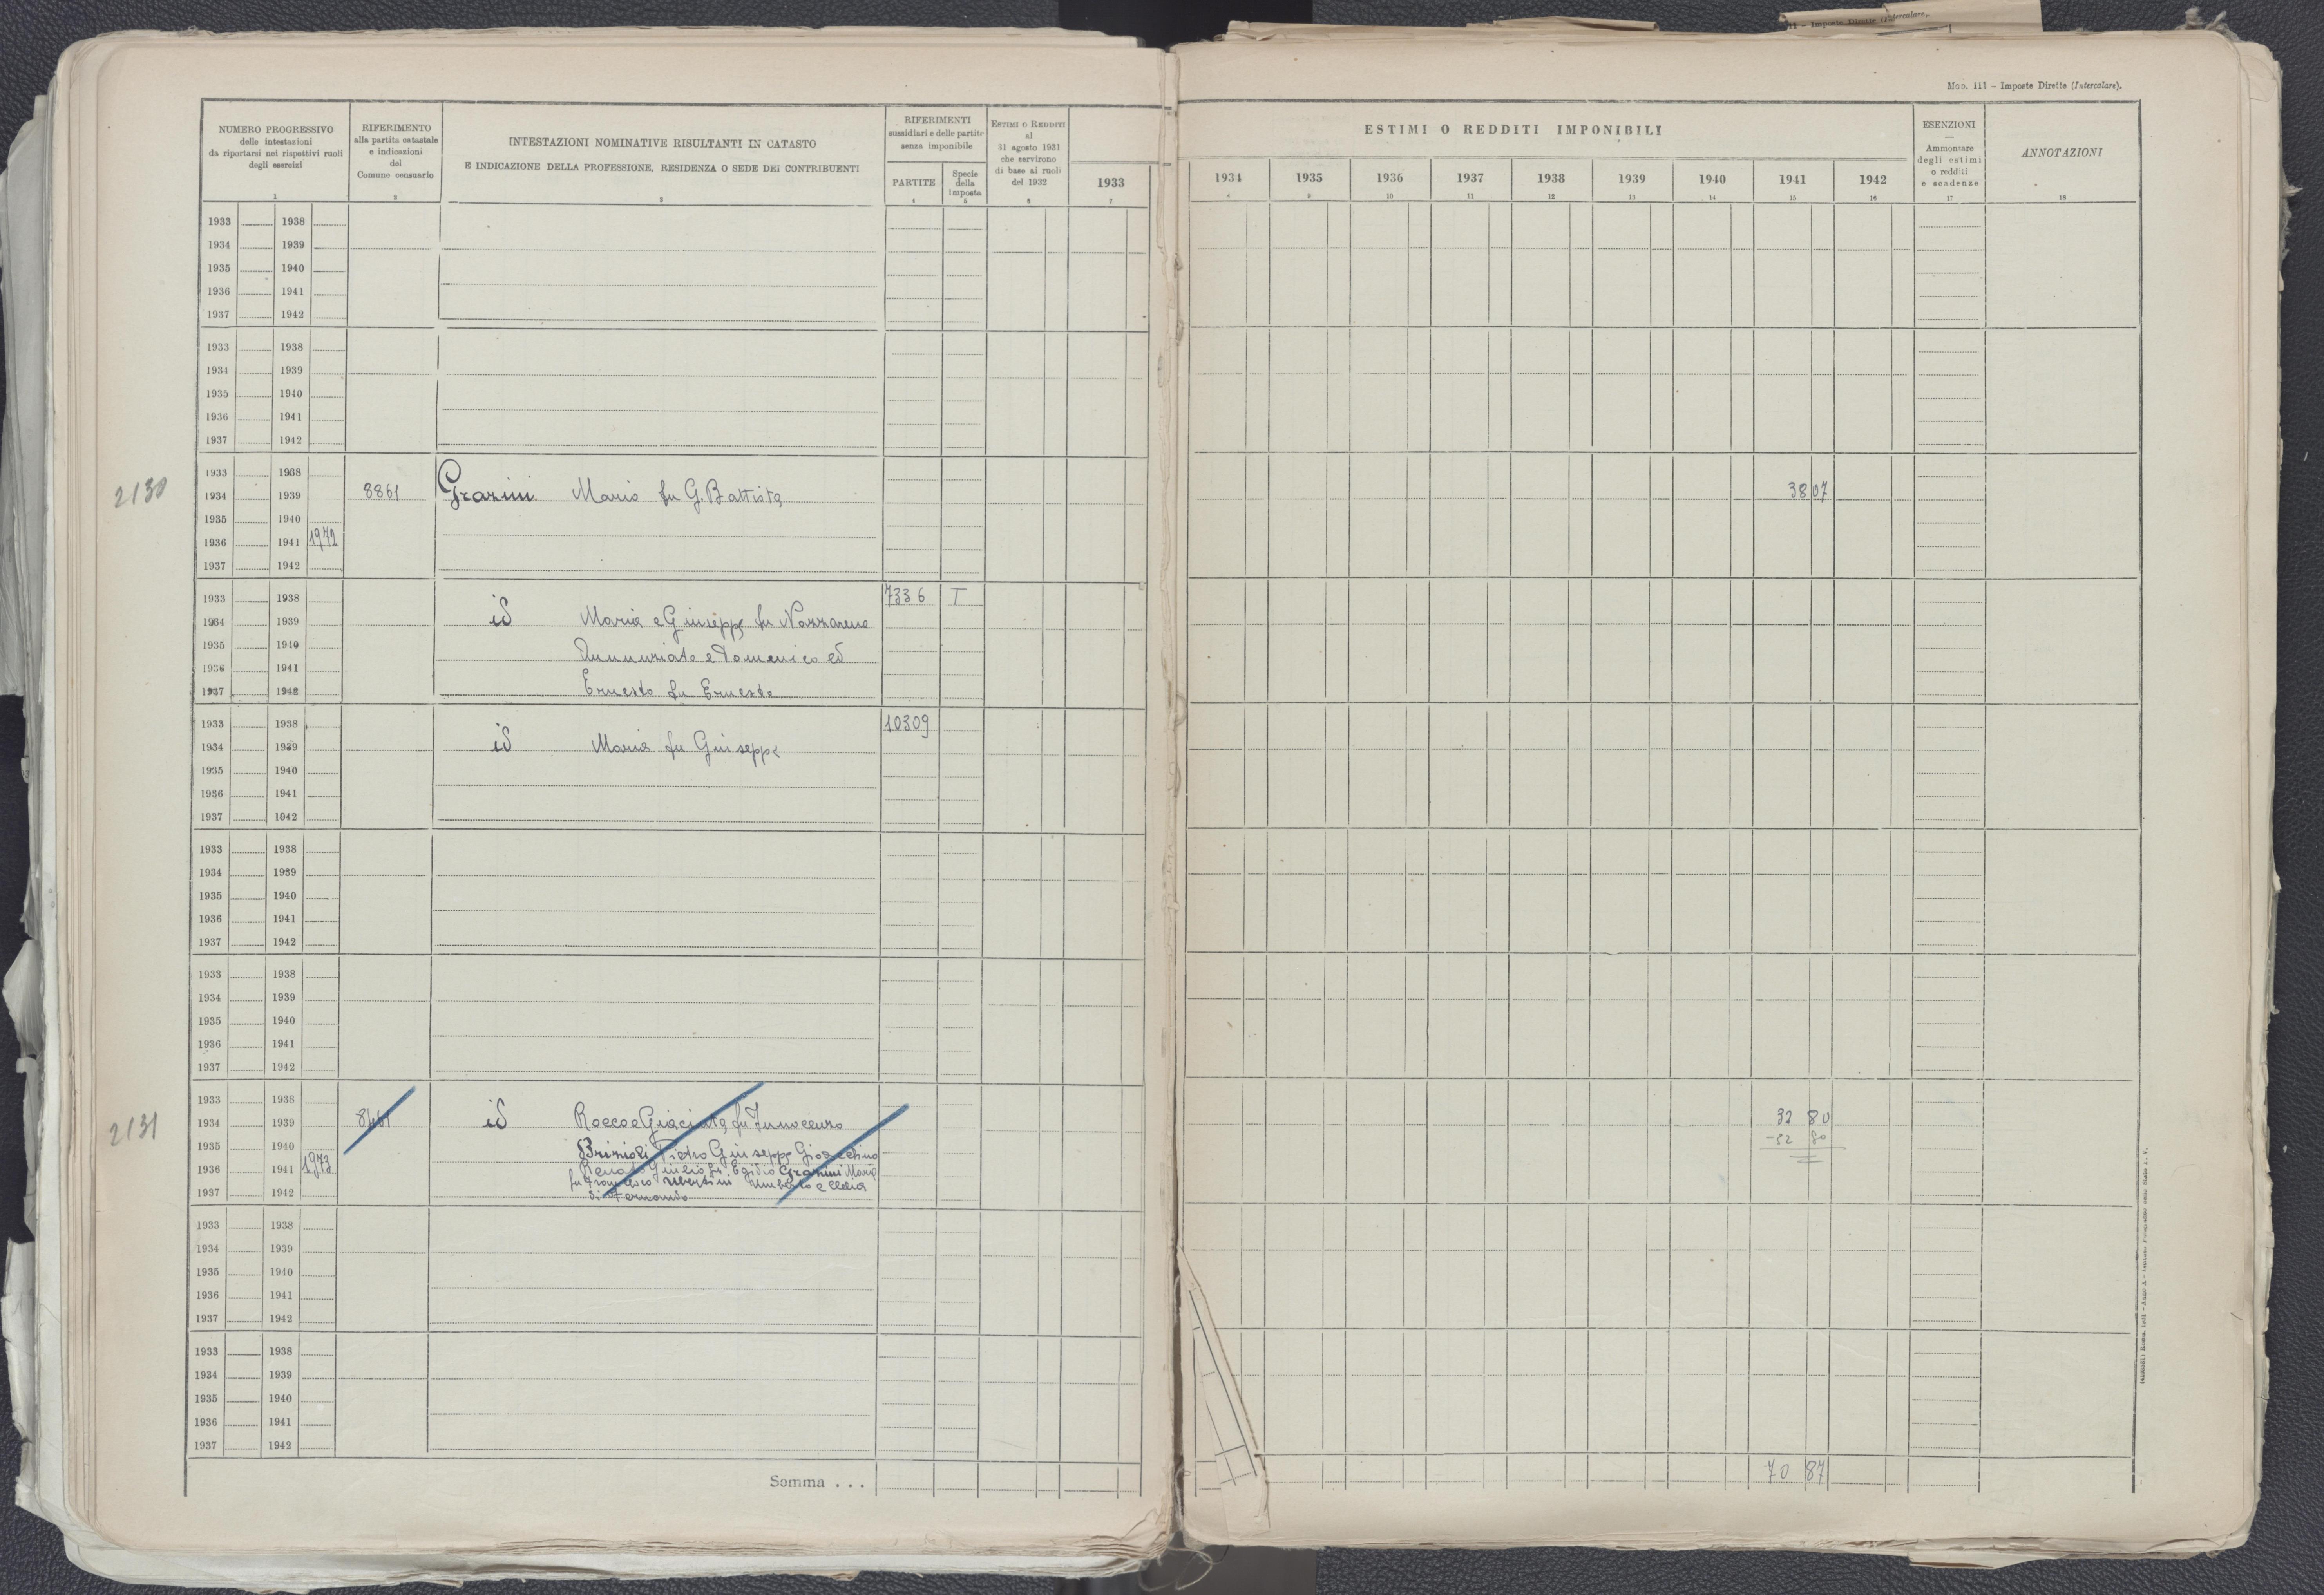 11 - Imposte Dirette (Intercalare).
Mod. 111 - Imposte Dirette (Intercalare).
NUMERO PROGRESSIVO
delle intestazioni
da riportarsi nei rispettivi ruoli
degli esercizi
1
RIFERIMENTO
alla partita catastale
e indicazioni
del
Comune censuario
2
INTESTAZIONI NOMINATIVE RISULTANTI IN CATASTO
E INDICAZIONE DELLA PROFESSIONE, RESIDENZA O SEDE DEI CONTRIBUENTI
3
RIFERIMENTI
sussidiari e delle partite
senza imponibile
PARTITE
4
Specie
della
imposta
5
ESTIMI O REDDITI
al
31 agosto 1931
che servirono
di base ai ruoli
del 1932
6
1933
7
ESTIMI O REDDITI IMPONIBILI
1934 1935 1936 1937 1938 1939 1940 1941 1942
9 10 11 12 13 14 15 16
ESENZIONI
Ammontare
degli estimi
o redditi
e scadenze
17
ANNOTAZIONI
18
1933 1938
1934 1939
1935 1940
1936 1941
1937 1942
1933 1938
1934 1939
1935 1940
1936 1941
1937 1942
1933 1938
2130 1934 1939 8861 Grazini Mario fu G. Battista 38 07
1935 1940
1936 1941 1972
1937 1942
1933 1938 7336 T
1934 1939 id Maria e Giuseppe fu Nazzareno
1935 1940 Annunziata e Domenico ed
1936 1941
1937 1942 Ernesto fu Ernesto
1933 1938 10309
1934 1939 id Maria fu Giuseppe
1935 1940
1936 1941
1937 1942
1933 1938
1934 1939
1935 1940
1936 1941
1937 1942
1933 1938
1934 1939
1935 1940
1936 1941
1937 1942
1933 1938
2131 1934 1939 id Rocco e Giacinta fu Innocenzo 32 80
1935 1940 Brizioli Pietro Giuseppe Gioacchino -32 80
1936 1941 1973 Renato Giulio fu Egidio Grazini Maria
fu Francesco Ubertini Umberto e Clelia
1937 1942 di Fernando
1933 1938
1934 1939
1935 1940
1936 1941
1937 1942
1933 1938
1934 1939
1935 1940
1936 1941
1937 1942
Somma . . . 70 87